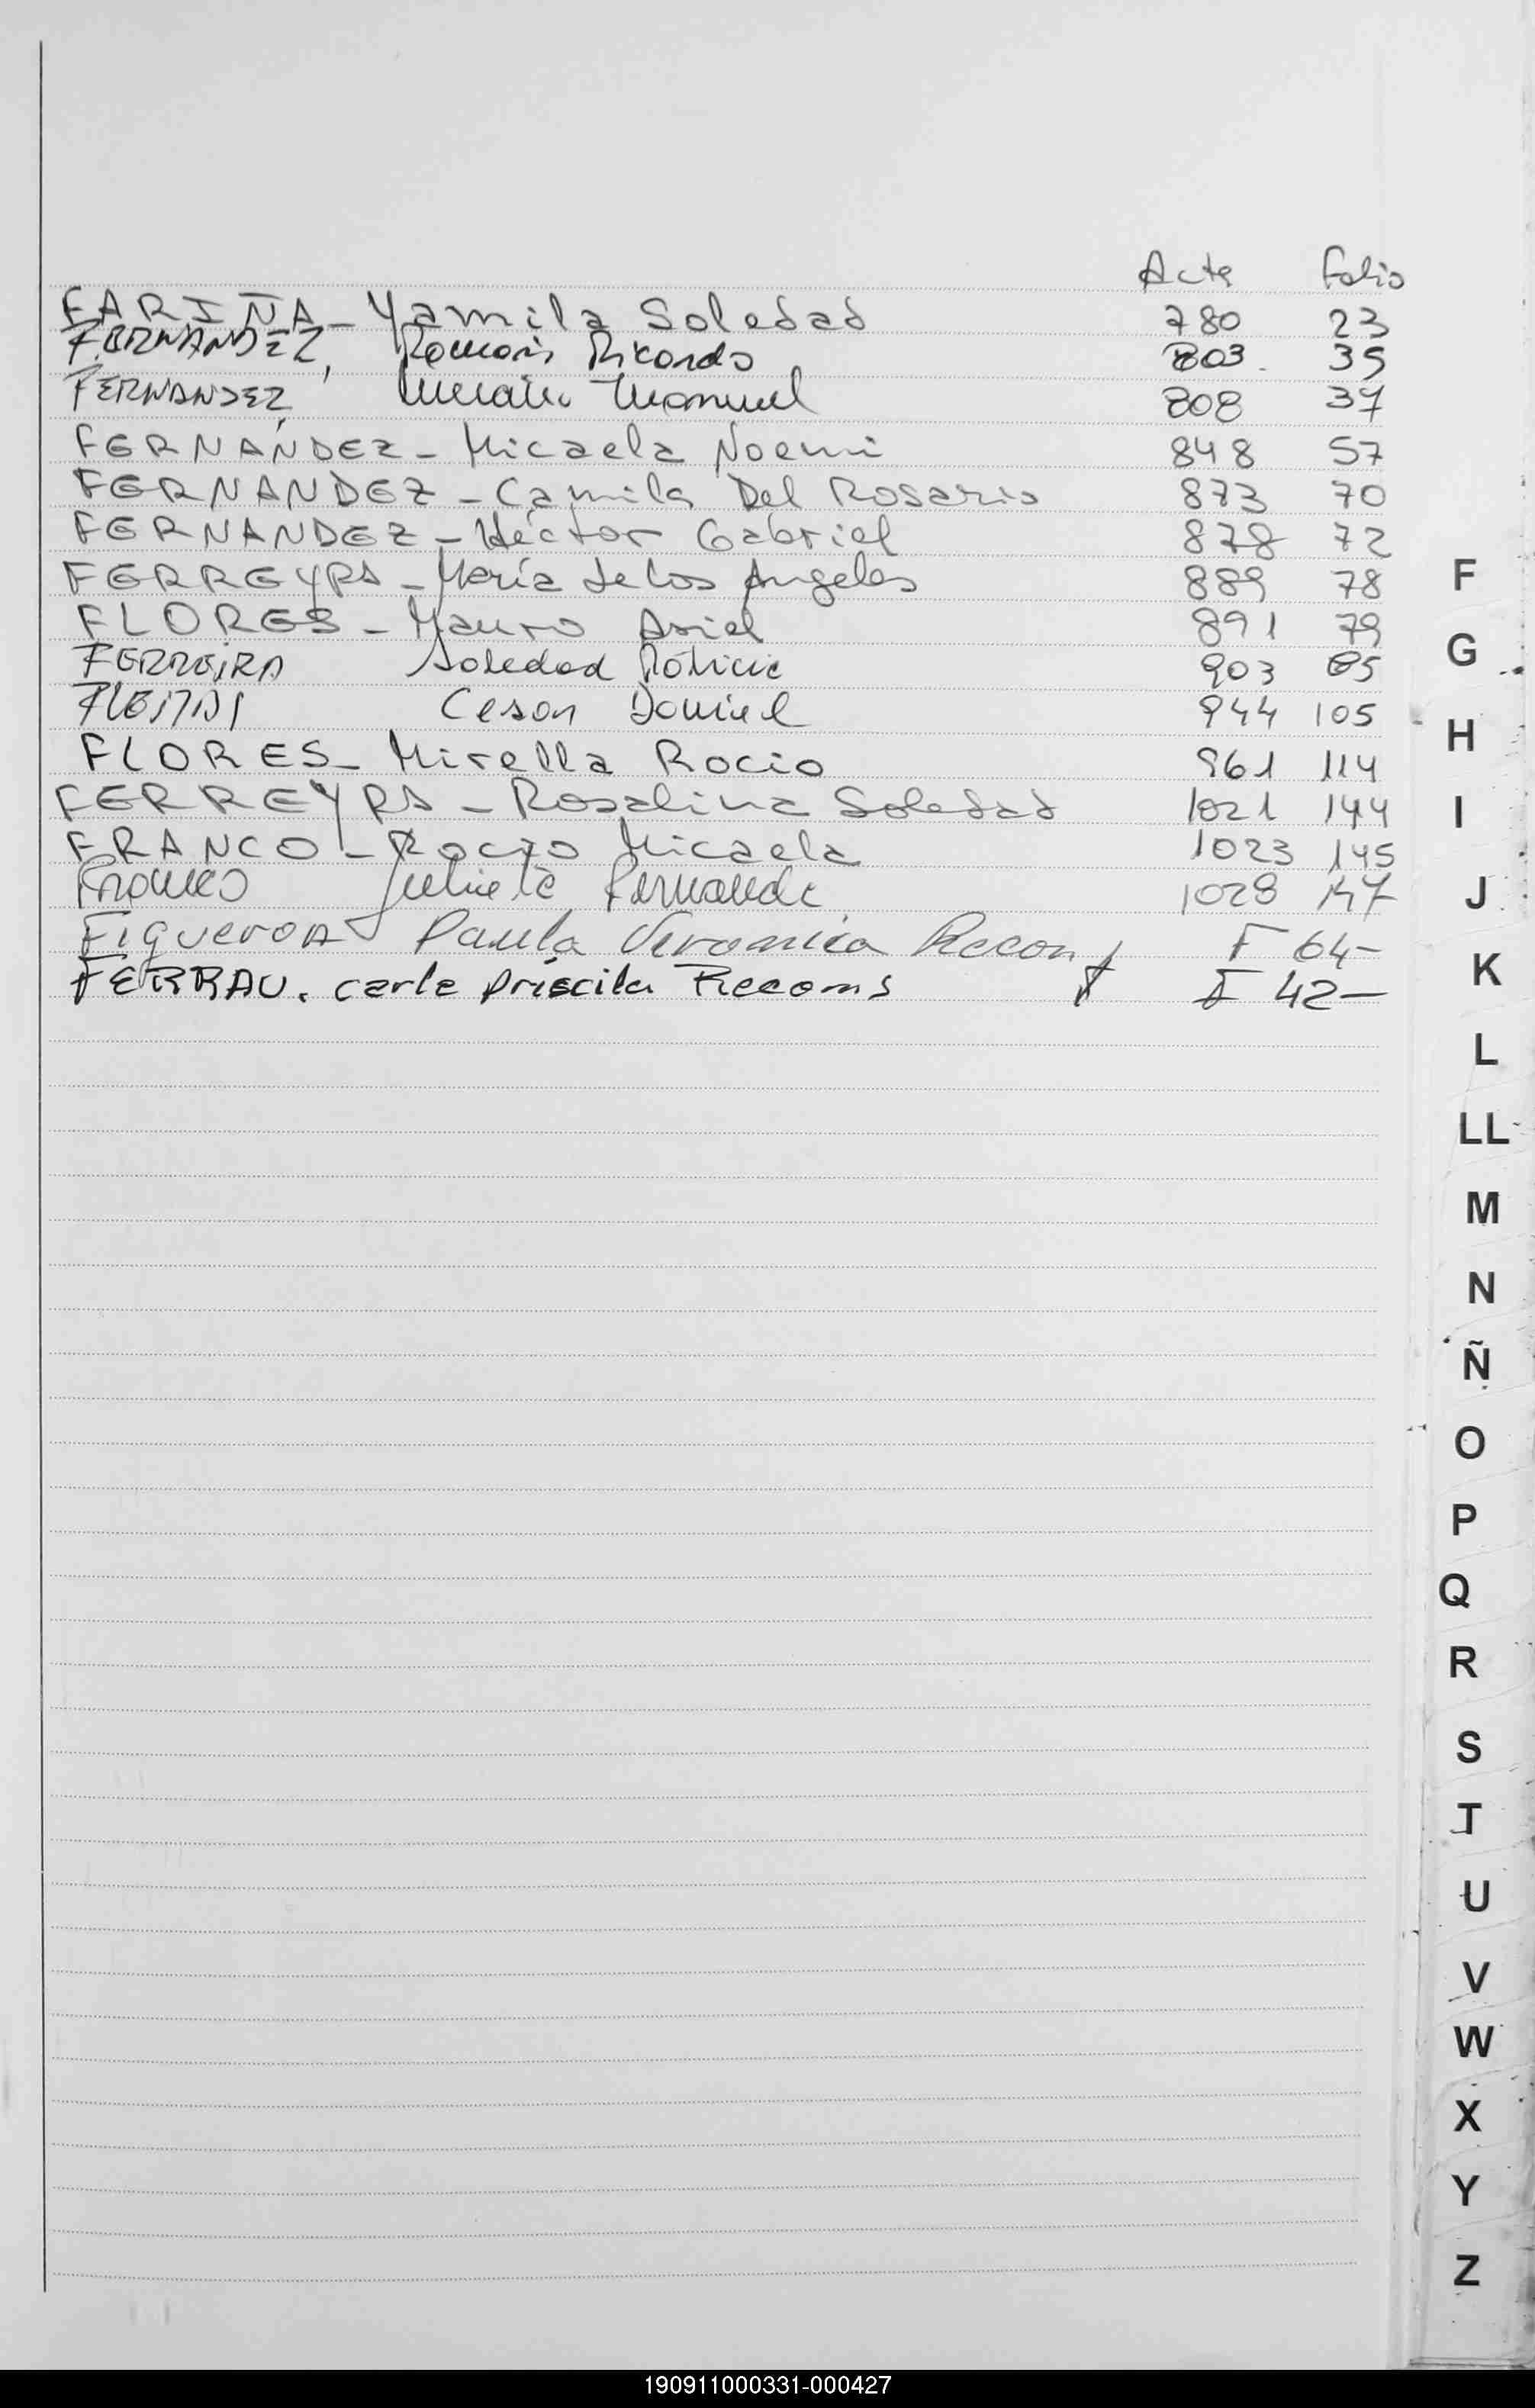 Acta Folio
FARIÑA - Yamila Soledad 780 23
FERNANDEZ, Ricardo 803 35
FERNANDEZ, Manuel 808 37
FERNANDEZ - Micaela Noemi 848 57
FERNANDEZ - Camila Del Rosario 873 70
FERNANDEZ - Héctor Gabriel 878 72
FERREYRA - María de los Angeles 889 78
FLORES - Mauro Ariel 891 79
FERREIRA Soledad 903 85
FLEITAS Cesar Daniel 944 105
FLORES - Mirella Rocio 961 114
FERREYRA - Rosalina Soledad 1021 144
FRANCO - Rocio Micaela 1023 145
Julieta Fernanda 1028 147
Figueroa Paula Veronica Recon F 64-
FERRAU. Carla Priscila Recons F 42-
F
G
H
I
J
K
L
LL
M
N
Ñ
O
P
Q
R
S
T
U
V
W
X
Y
Z
190911000331-000427